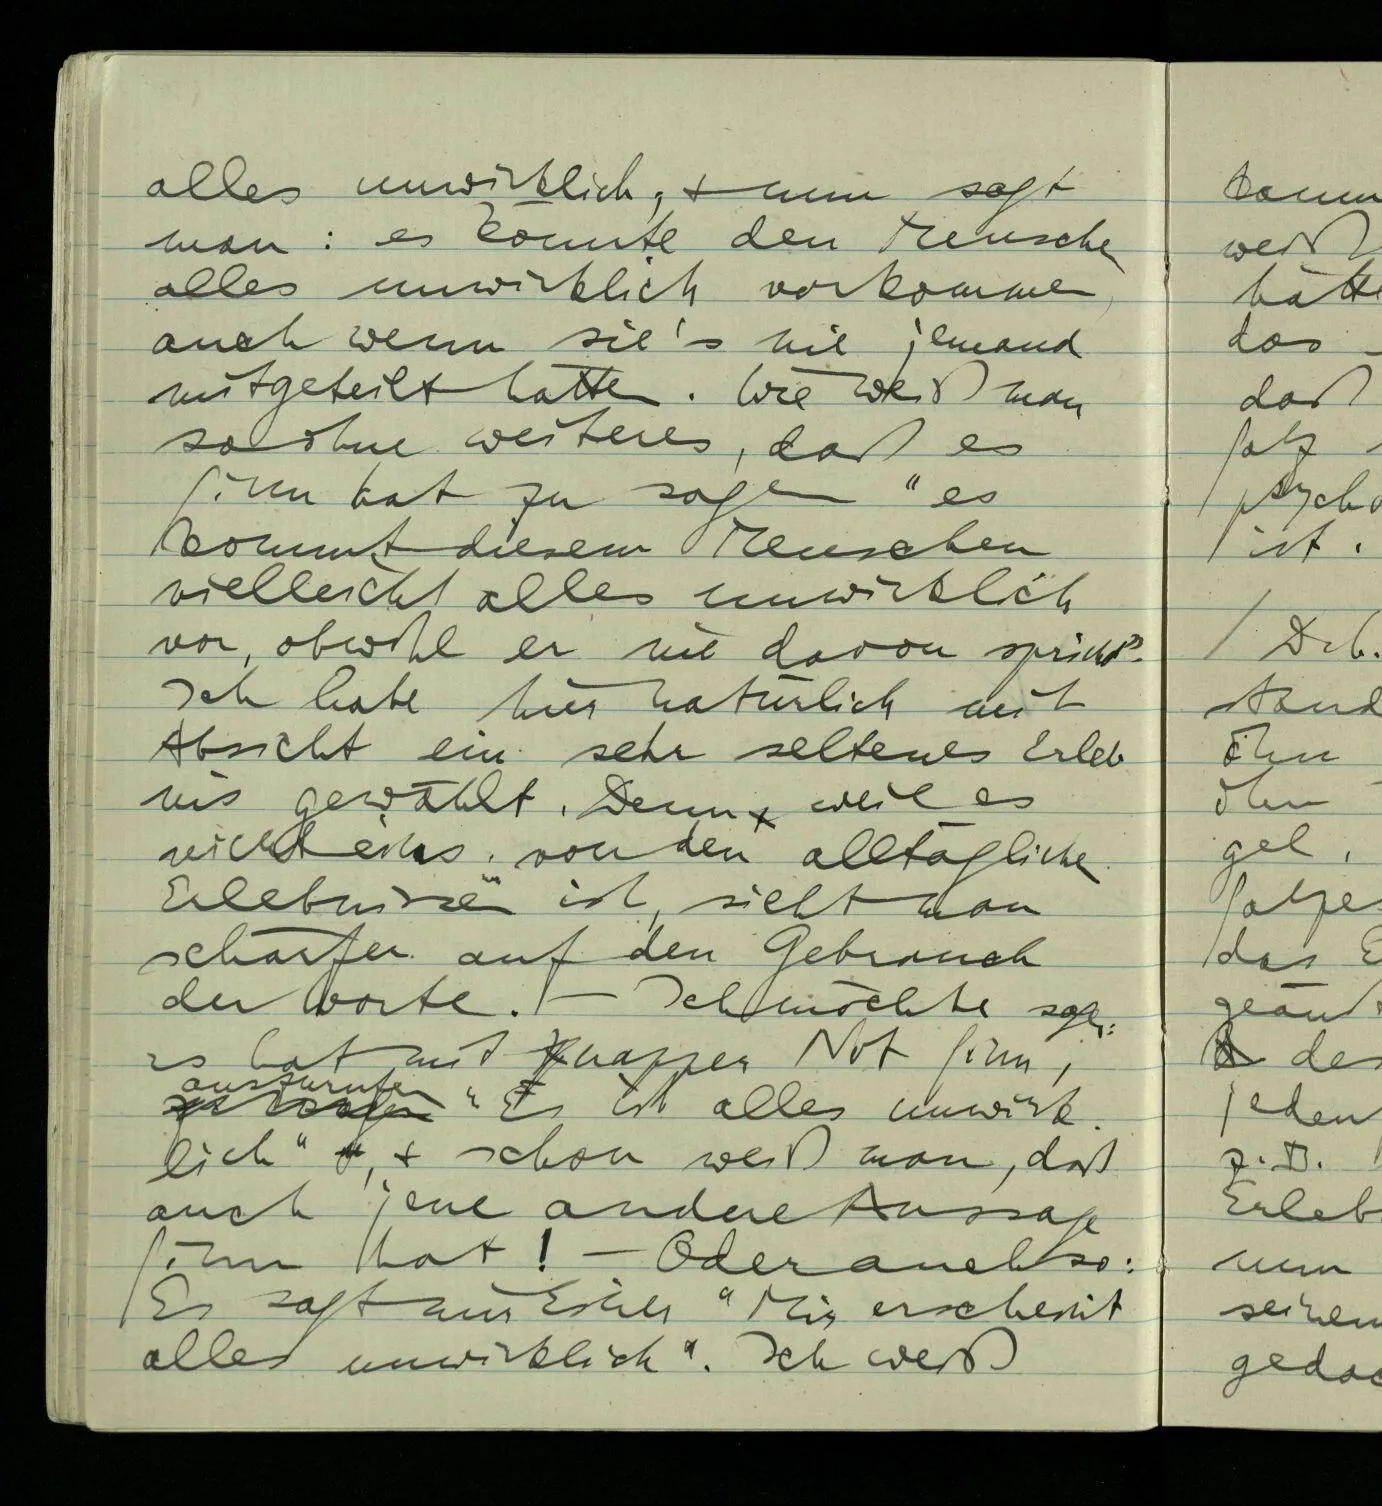 alles unwirklich, + nun sagt
man : es könnte den Mensche
alles unwirklich vorkommen,
auch wenn sie's nie jemand
mitgeteilt hätten. Wie weiß man
so ohne weiteres, daß es
Sinn hat zu sagen "es
kommt diesem Menschen
vielleicht alles unwirklich
vor, obwohl er nie davon spricht".
Ich habe hier natürlich mit
Absicht ein sehr seltenes Erleb
nis gewählt. Denn weil es
nicht eins von den alltägliche
Erlebnissen ist, sieht man
schärfer auf den Gebrauch
der Worte. – Ich möchte sagen:
es hat mit knapper Not Sinn,
auszurufen
zu sagen "Es ist alles unwirk
lich", + schon weiß man, daß
auch jene andere Aussage
Sinn hat! – Oder auch so:
Es sagt mir Einer "Mir erscheint
alles unwirklich". Ich weiß
weiß
hätte
das
daß
Satz
psycho
ist.
/
ihn
ihn
gel.
Satzes
das E
geänd
des
jeden
z.B.
Erleb
nun
seinem
gedac